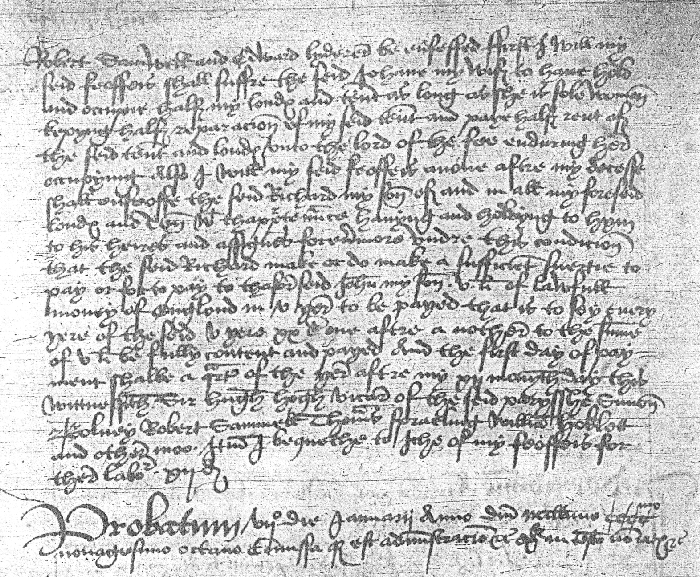 Robert Samwell and Edward be enfeffed ffirst I will my
seid feoffeis shall suffre the seid Johane my wiff to have hold
and occupie halff my londs and tent as long as she is sole woman
kepyng halff reparacion of my seid tent and paye halff rent of
the seid tent and londs unto the lord of the fee enduring her
occupying Also I will my seid feoffeis anone aftre my decesse
shall enfeoffe the seid Richard my son of and in all my foreseid
londs and ten w thapptenncs havyng and holdyng to hym
to his heires and assignes forevermore undre this condicion
that the seid Richard make or do make a sufficient suertie to
pay or for to pay to thaforseid John my son v li of lawfull
money of Englond in v yer to be payed that is to sey every
yere of the seid v yeres xx s one aftre a nother to the sume
of v li be fully content and payed And the first day of pay
ment shalbe a of the yer aftre my xij monethday this
wittnessith Sir hugh vicar of the seid parysshe Simon
Robert Samwell Thomas William
and other moo Itm I bequethe to iche of my feoffeis for
ther labor xij d
Probatum vij die Januarii Anno dni millimo cccc
nonagesimo octavo Comissa est administracio